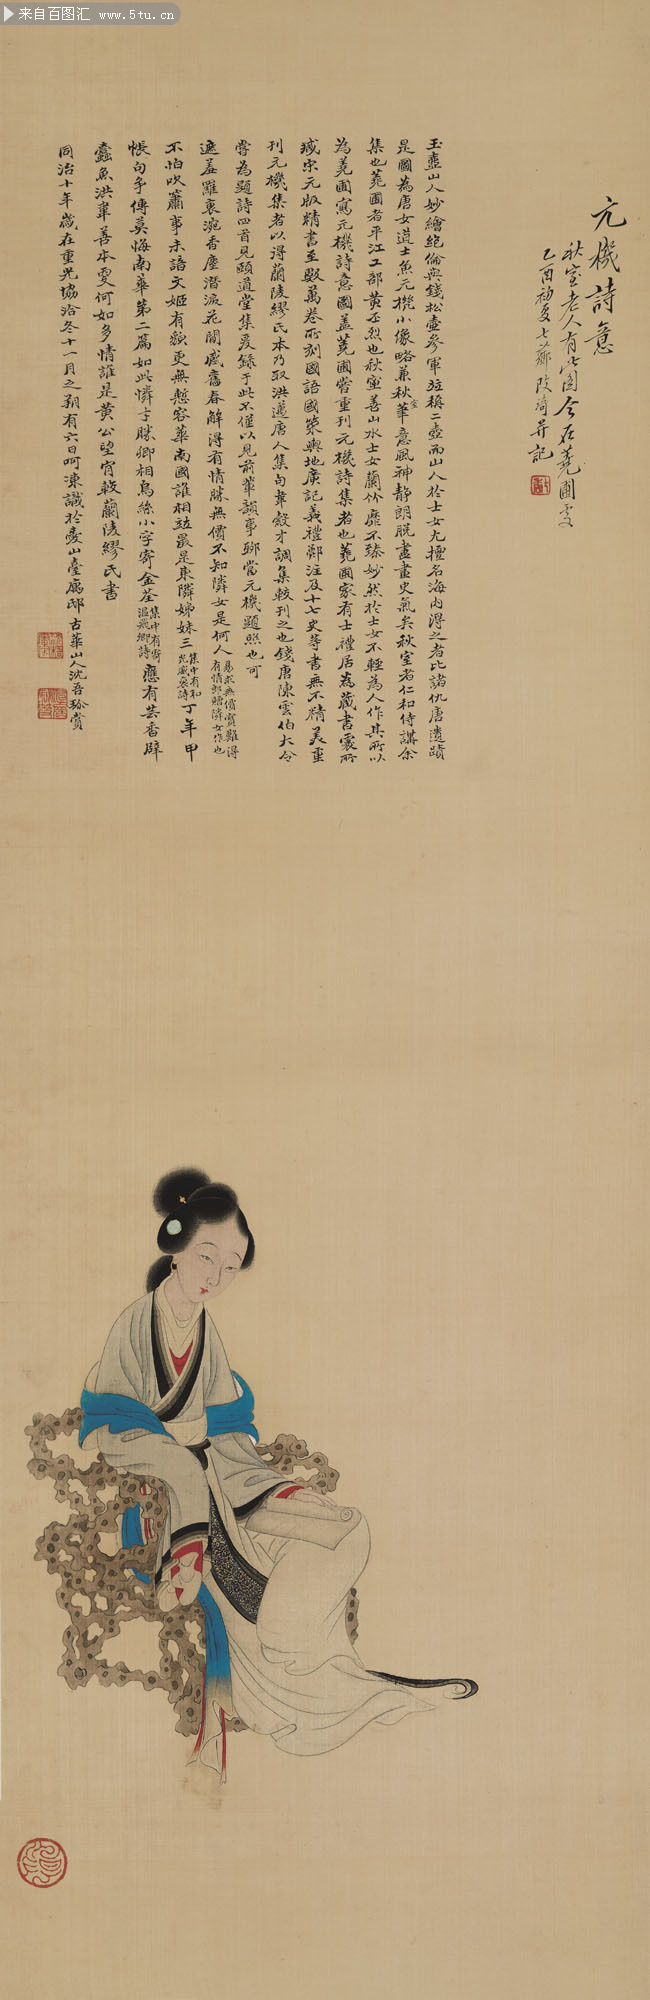 来自百图汇 www.5tu.cn
元機詩意
秋室老人有此圖今在蕘圃處
乙酉初夏七薌改琦并記
玉壺山人妙繪絕倫與錢松壺參軍竝稱二壺而山人於士女尤擅名海內得之者比諸仇唐遺蹟
是圖為唐女道士魚元機小像略兼秋室華意風神靜朗脫盡畫史氣矣秋室者仁和侍講余
集也蕘圃者平江工部黃丕烈也秋室善山水士女蘭竹靡不臻妙然於士女不輕為人作其所以
為蕘圃寫元機詩意圖蓋蕘圃嘗重刊元機詩集者也蕘圃家有士禮居為藏書處所
臧宋元版精書至數萬卷所刻國語國策輿地廣記義禮鄭注及十七史等書無不精美重
刊元機集者以得蘭陵繆氏本乃取洪邁唐人集句韋縠才調集較刊之也錢唐陳雲伯大令
嘗為題詩四首見頤道堂集爰錄于此不僅以見前輩韻事聊當元機題照也可
遮羞羅裹浣香塵潛淚花間感舊春解得有情勝無價不知隣女是何人易求無價寶難得有情郎贈隣女作也
不怕吹簫事未諳文姬有歎更無慙容華南國誰相竝最是東隣姊妹三集中有和光威裒詩丁年甲
帳句爭傳莫悔南華第二篇如此憐才勝卿相烏絲小字寄金荃集中有寄溫飛卿詩應有芸香辟
蠹魚洪韋善本更何如多情誰是黃公望肯較蘭陵繆氏書
同治十年歲在重光協洽冬十一月之朔有六日呵凍識於愛山臺廎邸古華山人沈吾珍賞